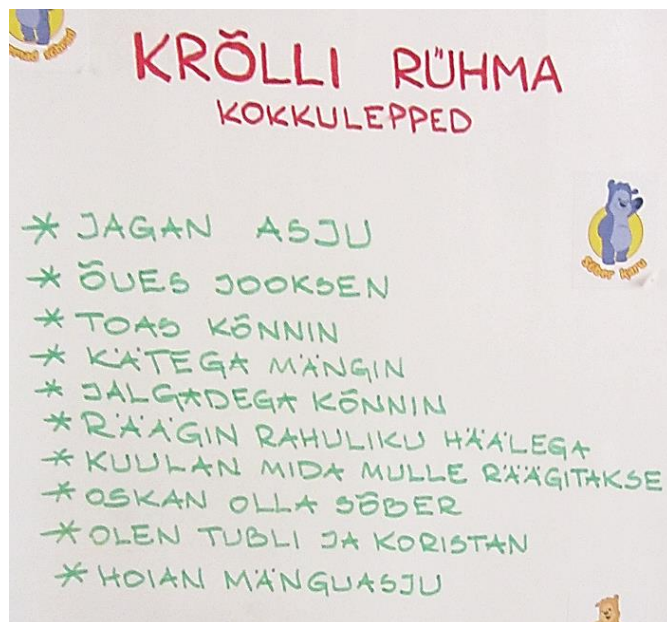 KRÕLLI RÜHMA
KOKKULEPPED
* JAGAN ASJU
* ÕUES JOOKSEN
* TOAS KÕNNIN
* KÄTEGA MÄNGIN
* JALGADEGA KÕNNIN
* RÄÄGIN RAHULIKU HÄÄLEGA
* KUULAN MIDA MULLE RÄÄGITAKSE
* OSKAN OLLA SÕBER
* OLEN TUBLI JA KORISTAN
* HOIAN MÄNGUASJU
Sõber karu